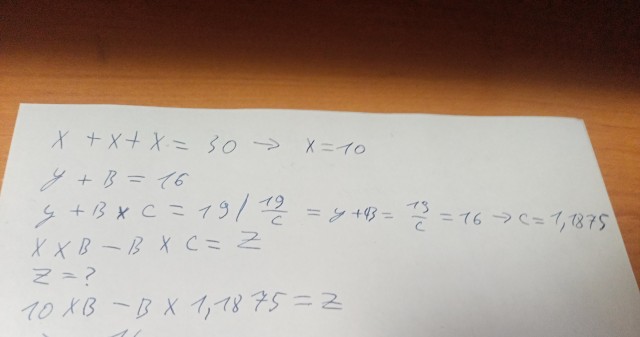 X + X + X = 30 → X = 10
y + B = 16
y + B × C = 19 / 19/C = y + B = 19/C = 16 → C = 1,1875
X × B - B × C = Z
Z = ?
10 × B - B × 1,1875 = Z